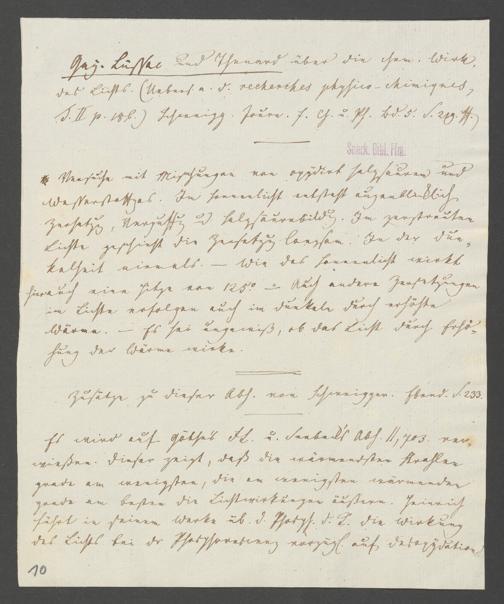 Gay-Lussac und Thenard über die chem. Wirk.
des Lichts. (Uebers. a. d. recherches physico-chimiques,
T. II p. 186.) Schweigg. Journ. f. Ch. u. Ph. Bd. 5. S. 219. ff.)
Senck. Bibl. Ffm.
Versuche mit Mischungen von oxydirt salzsaurem und
Wasserstoffgas. Im Sonnenlicht entsteht augenblicklich
Zersetzg, Verpuffg u Salzsäurebildg. Im zerstreuten
Lichte geschieht die Zersetzg langsam. In der Dun-
kelheit niemals. — Wie das Sonnenlicht wirkt
hierauch eine Hitze von 125° — Auch andere Zersetzungen
im Lichte erfolgen auch im Dunkeln durch erhöhte
Wärme. — Es sei ungewiß, ob das Licht durch Erhö-
hung der Wärme wirke.
Zusätze zu dieser Abh. von Schweigger. Ebend. S. 233.
Es wird auf Göthe's Fl. u. Seebeck's Abh. II, 703. ver-
wiesen. Dieser zeigt, daß die wärmendsten Strahlen
grade am wenigsten, die am wenigsten wärmenden
grade am besten die Lichtwirkungen äußern. Heinrich
führt in seinem Werke üb. d. Phosph. d. K. die Wirkung
des Lichts bei der Phosphorescenz vorzügl auf Desoxydation
10